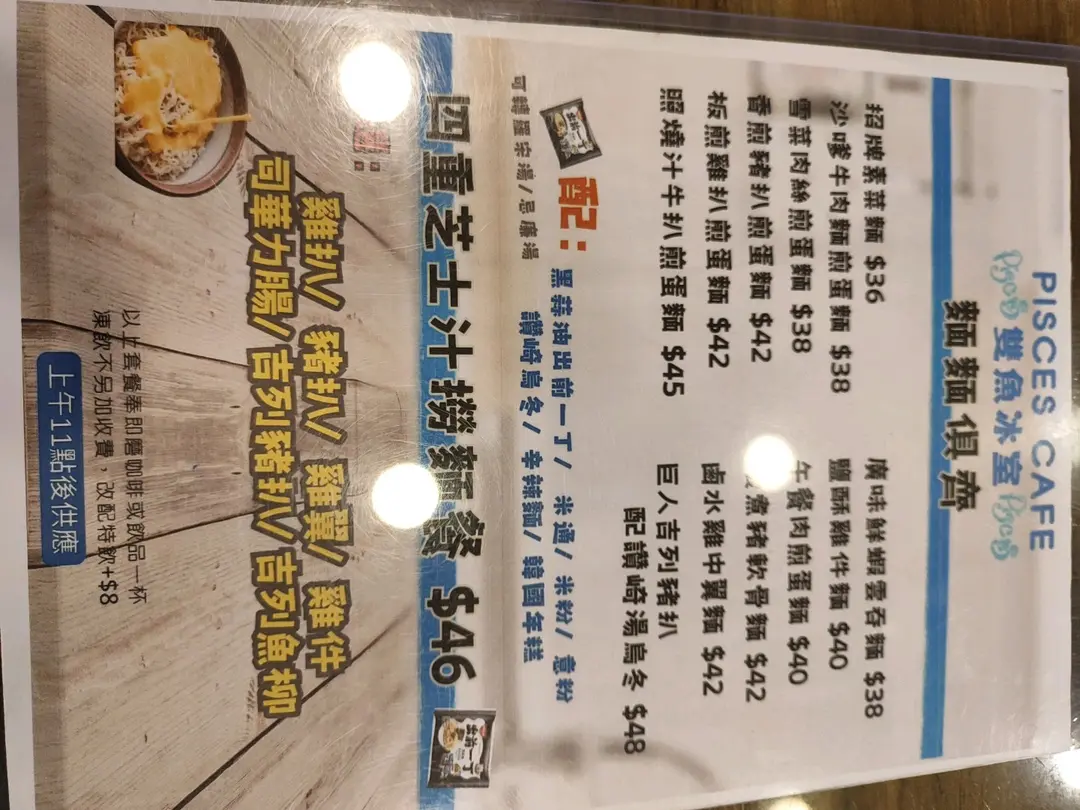 PISCES CAFE
Pisces 雙魚冰室 Pisces
麵麵俱齊
招牌素菜麵 $36
沙嗲牛肉麵煎蛋麵 $38
雪菜肉絲煎蛋麵 $38
香煎豬扒煎蛋麵 $42
板煎雞扒煎蛋麵 $42
照燒汁牛扒煎蛋麵 $45
廣味鮮蝦雲吞麵 $38
鹽酥雞件麵 $40
午餐肉煎蛋麵 $40
煮豬軟骨麵 $42
鹵水雞中翼麵 $42
巨人吉列豬扒
配讚崎湯烏冬 $48
配:
黑蒜油出前一丁/ 米通/ 米粉/ 意粉
讚崎烏冬/ 辛辣麵/ 韓國年糕
可轉羅宋湯/忌廉湯
四重芝士汁撈麵餐 $46
出前一丁
配:
雞扒/ 豬扒/ 雞翼/ 雞件
司華力腸/ 吉列豬扒/ 吉列魚柳
以上套餐奉即磨咖啡或飲品一杯
凍飲不另加收費，改配特飲+$8
上午11點後供應